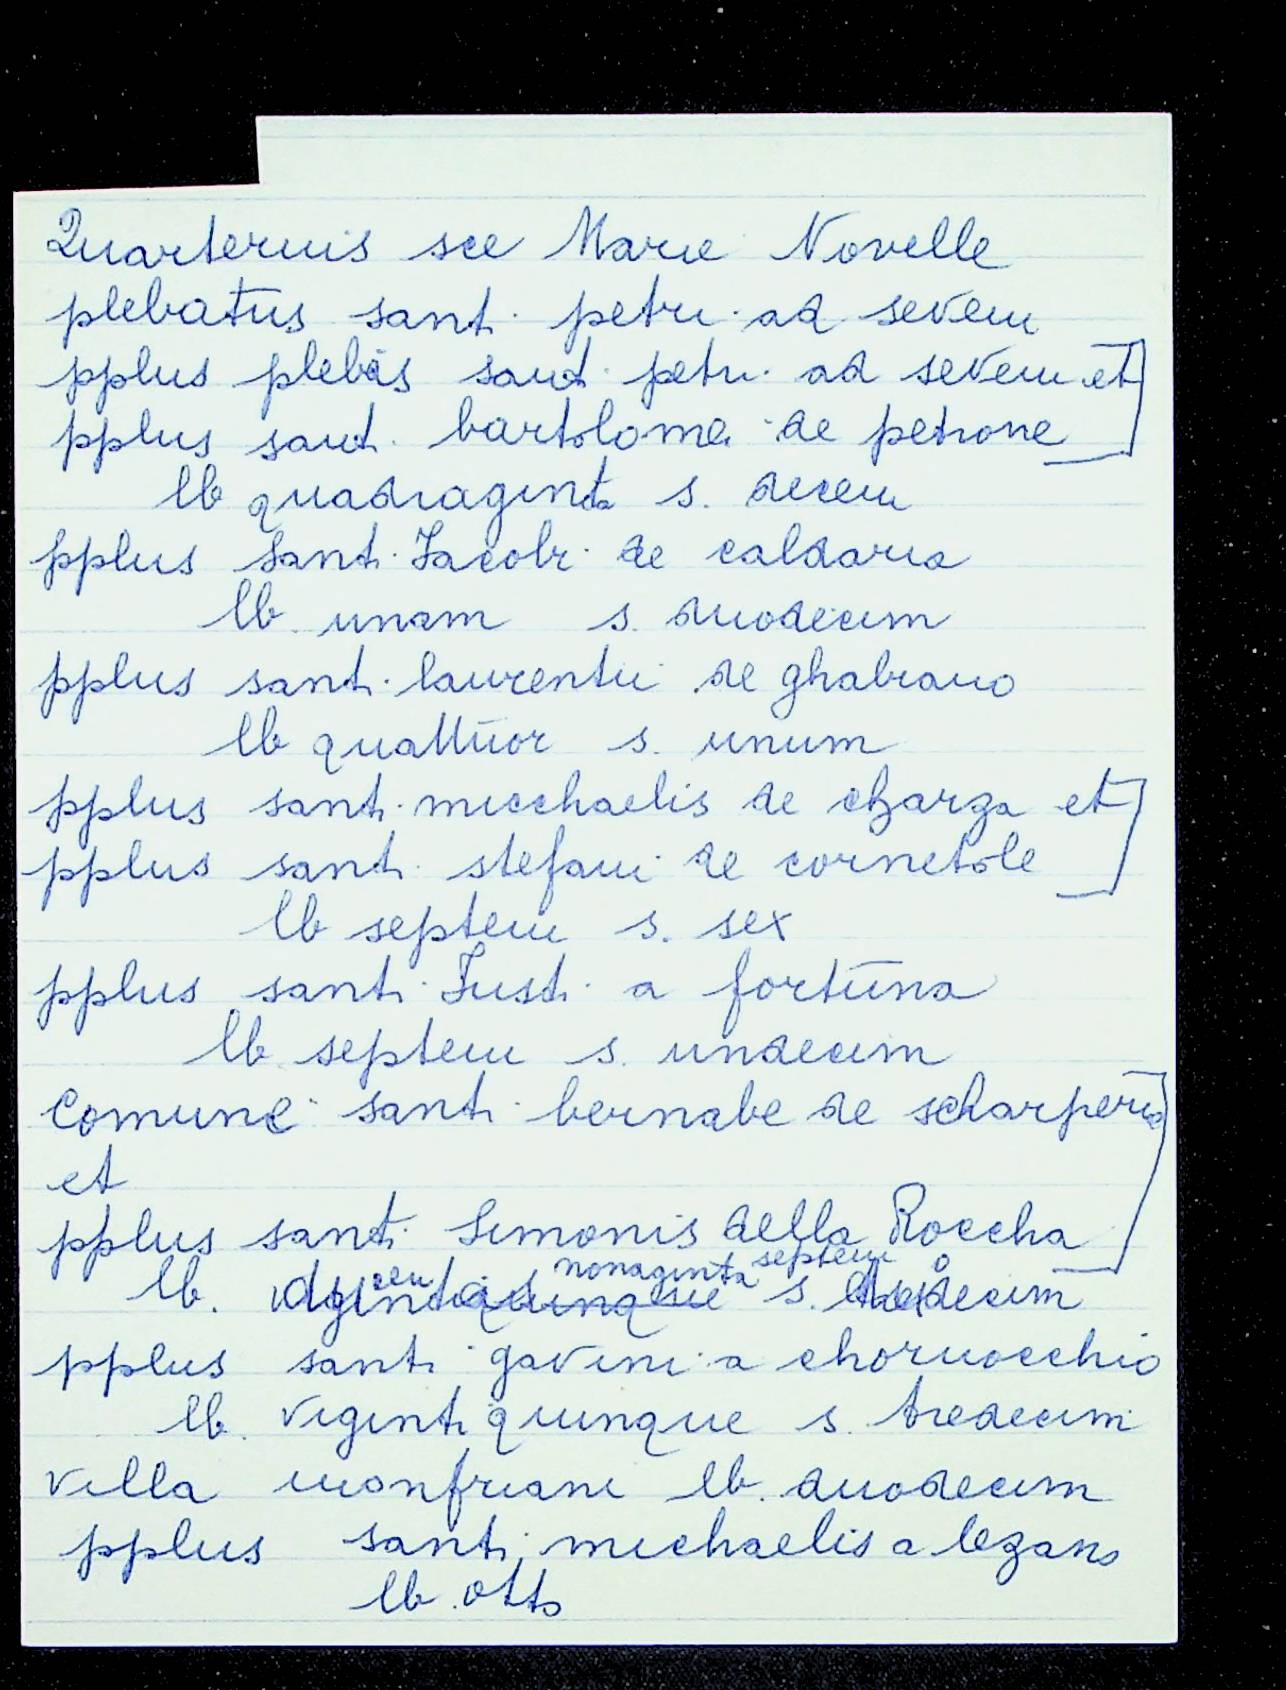 Quarterius sce Marie Novelle
plebatus santi petri ad sevem
pplus plebis santi petri ad sevem et
pplus santi bartolomei de petrone
lb quadraginta s. decem
pplus santi Jacobi de caldaria
lb. unam s. duodecim
pplus santi laurentii de ghabiano
lb quattuor s. unum
pplus santi micchaelis de charza et
pplus santi stefani de cornetole
lb septem s. sex
pplus santi Justi a fortuna
lb septem s. undecim
Comune santi bernabe de scharperia
et
pplus santi Simonis della Roccha
nonaginta septem
lb. s.
pplus santi gavini a chornocchio
lb. viginti quinque s. tredecim
villa monfriani lb. duodecim
pplus santi michaelis a lezano
lb. otto